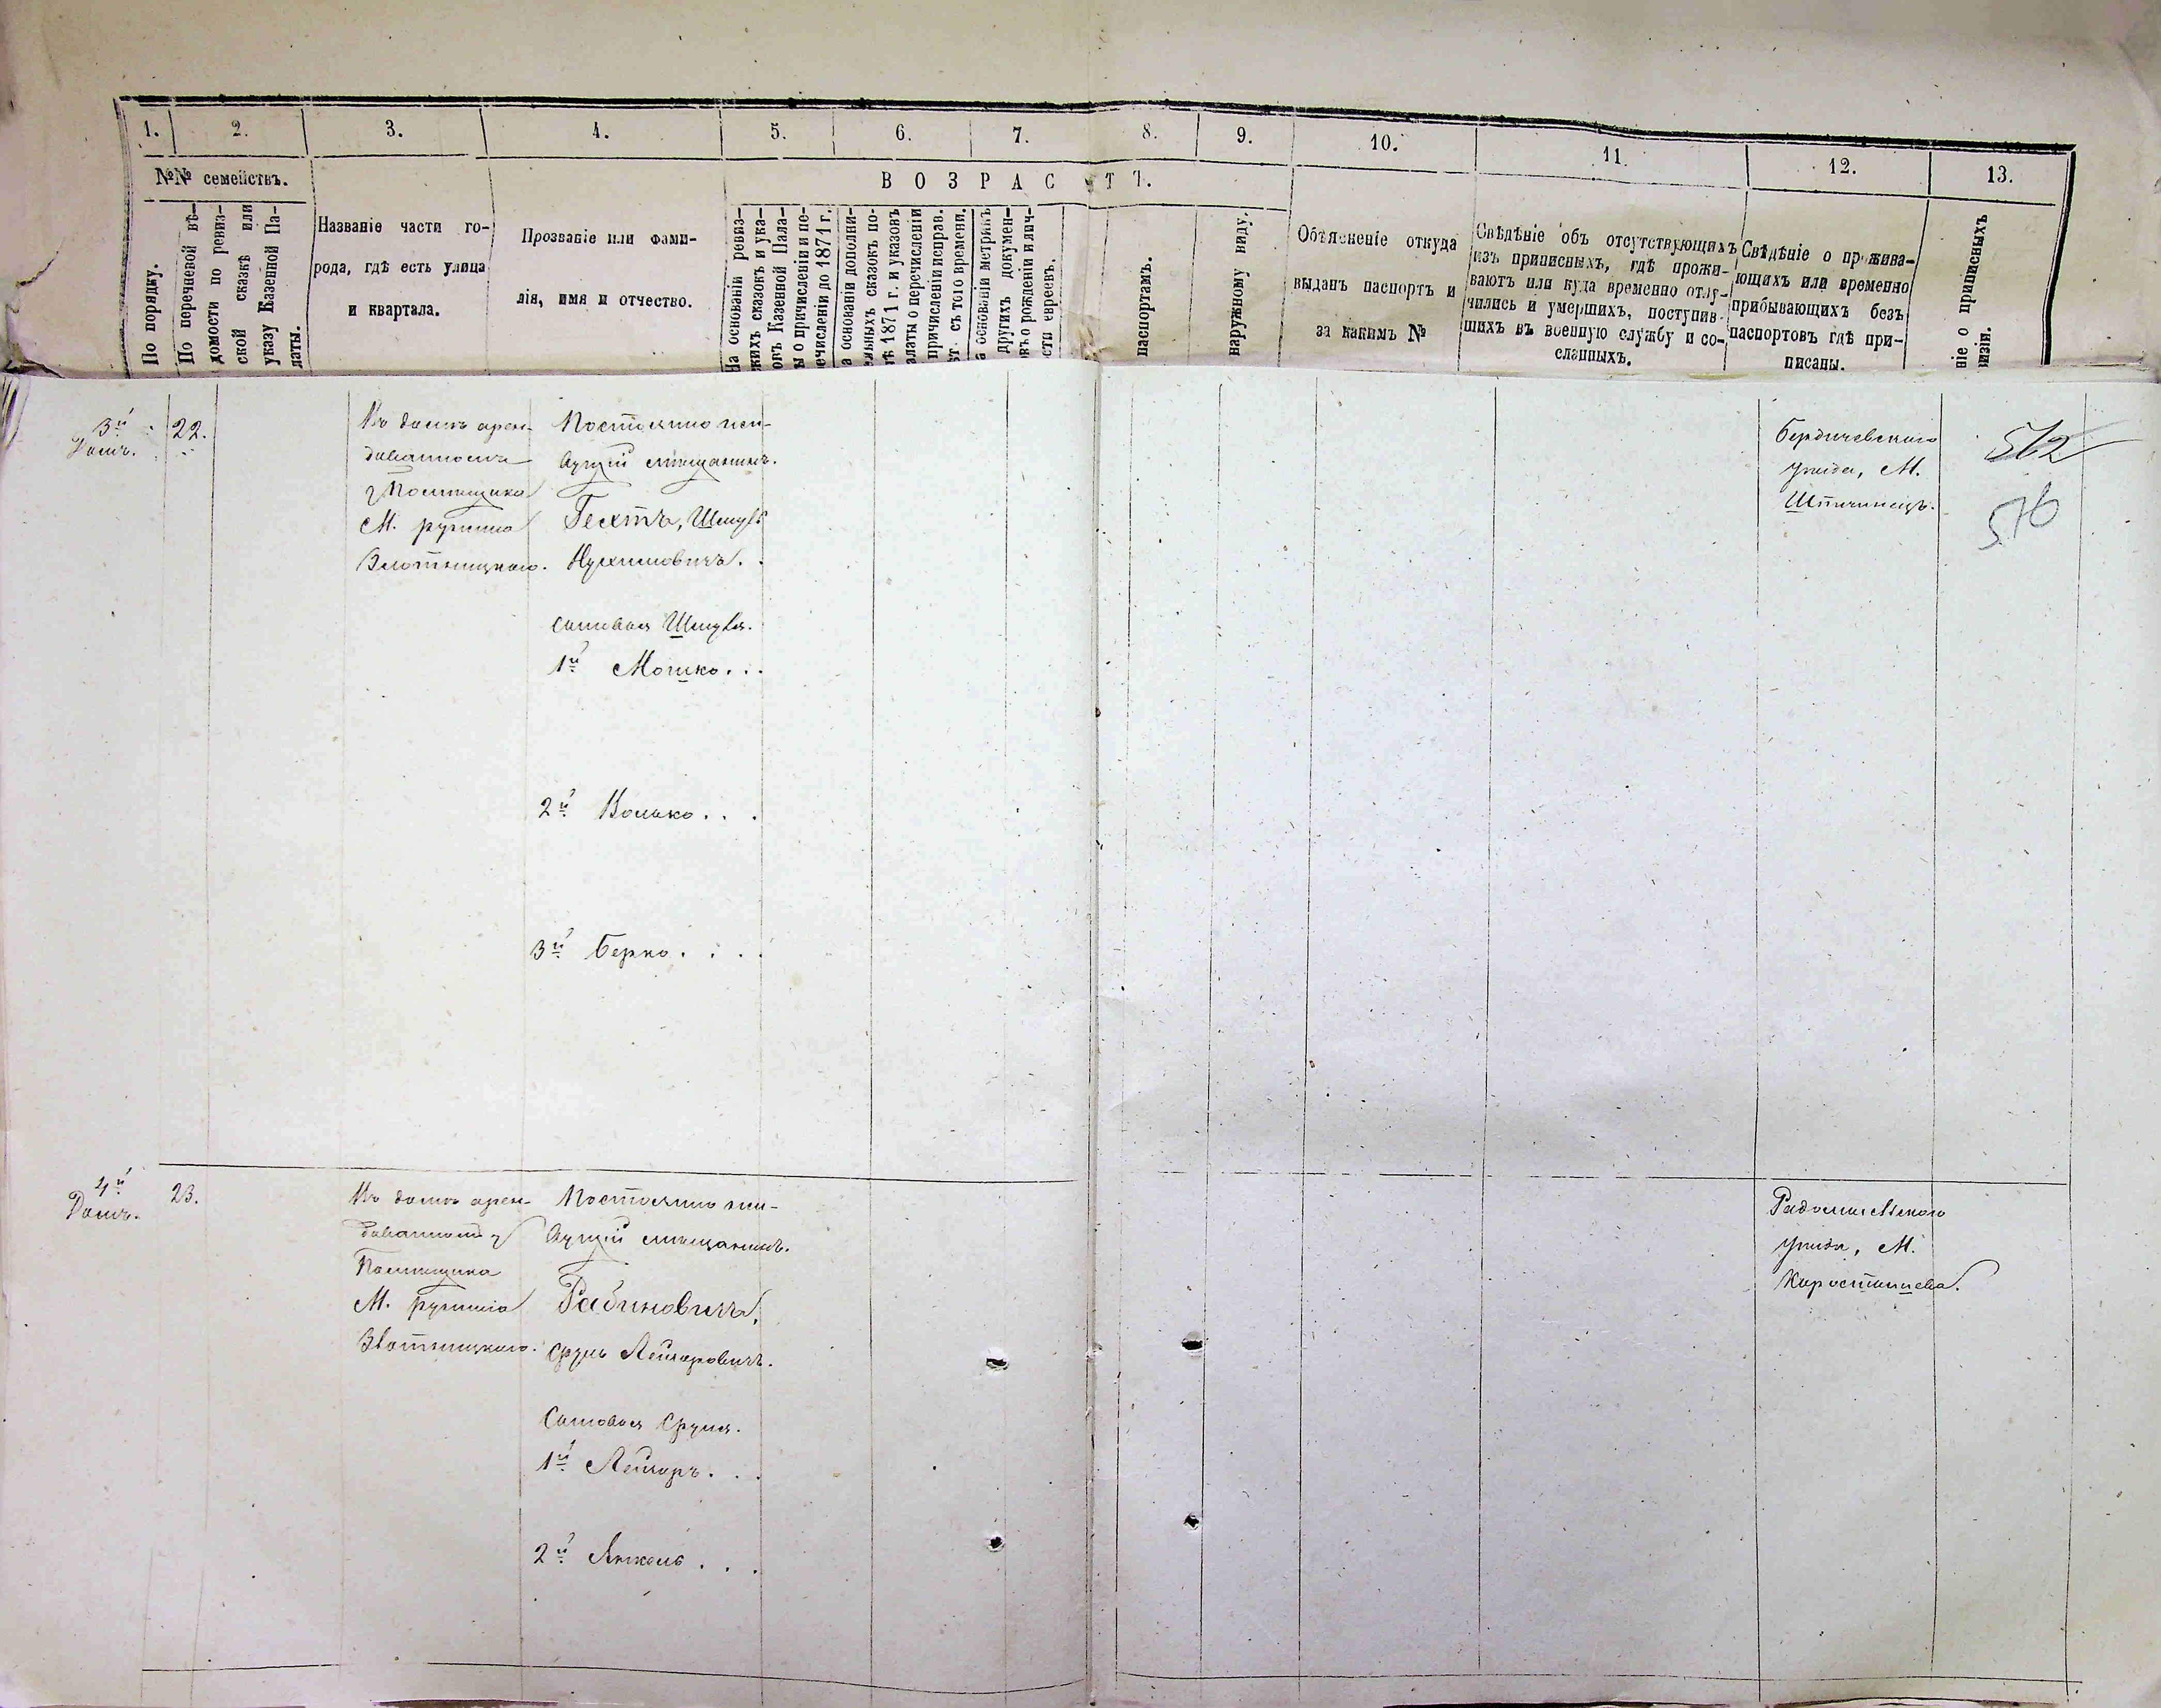 1. 2. 3. 4. 5. 6. 7. 8. 9. 10. 11. 12. 13.
№№ семействъ.
В О З Р А С Т Ъ.
По порядку.
По перечневой вѣ-
домости по ревиз-
ской сказкѣ или
указу Казенной Па-
латы.
Названіе части го-
рода, гдѣ есть улица
и квартала.
Прозваніе или фами-
лія, имя и отчество.
На основаніи ревиз-
жихъ сказокъ и ука-
овъ Казенной Пала-
ы о причисленіи и пе-
ечисленіи до 1871 г.
а основаніи дополни-
ельныхъ сказокъ по-
тѣ 1871 г. и указовъ
алаты о перечисленіи
причисленіи исправ.
ьт. съ того времени.
а основаніи метрикъ
другихъ докумен-
овъ о рожденіи и лич-
сти евреевъ.
паспортамъ.
наружному виду.
Объясненіе откуда
выданъ паспортъ и
за какимъ №
Свѣдѣніе объ отсутствующихъ
изъ приписныхъ, гдѣ прожи-
ваютъ или куда временно отлу-
чились и умершихъ, поступив-
шихъ въ военную службу и со-
сланныхъ.
Свѣдѣніе о прожива-
ющихъ или временно
прибывающихъ безъ
паспортовъ гдѣ при-
писаны.
ніе о приписныхъ
визіи.
3й
Домъ.
22.
Въ домѣ арен-
дованномъ
у Помѣщика
М. Ружина
Злотницкаго.
Постоянно жи-
вущій мѣщанинъ.
Гехтъ, Шмуль
Нухимовичъ.
сыновья Шмуля.
1й Мошко...
2й Волько...
3й Берко....
Бердичевскаго
уѣзда, М.
Шпичинецъ.
562
576
4й
Домъ.
23.
Въ домѣ арен-
дованномъ у
Помѣщика
М. Ружина
Злотницкаго.
Постоянно жи-
вущій мѣщанинъ.
Рабиновичъ,
Сруль Лейзеровичъ.
Сыновья Сруля.
1й Лейзеръ...
2й Янкель...
Радомысльскаго
уѣзда, М.
Коростышева.